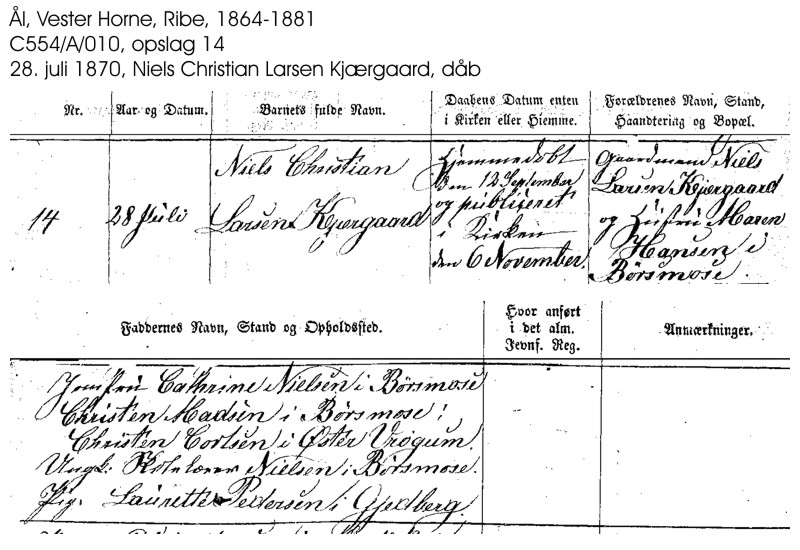 Ål, Vester Horne, Ribe, 1864-1881
C554/A/010, opslag 14
28. juli 1870, Niels Christian Larsen Kjærgaard, dåb
Nr.
Aar og Datum.
Barnets fulde Navn.
Daabens Datum enten
i Kirken eller Hjemme.
Forældrenes Navn, Stand,
Haandtering og Bopæl.
14
28 Juli
Niels Christian
Larsen Kjærgaard
Hjemmedöbt
den 12 September
og publiseret
i Kirken
den 6 November.
Gaardmand Niels
Larsen Kjærgaard
og Hustru Maren
Hansen i
Börsmose.
Faddernes Navn, Stand og Opholdssted.
Hvor anført
i det alm.
Jevnf. Reg.
Anmærkninger.
Jomfru Cathrine Nielsen i Börsmose
Christen Madsen i Börsmose
Christen Cortsen i Øster Vrögum.
Ungk. Nielsen i Börsmose.
Pig. Laurette Pedersen i Gjedberg.